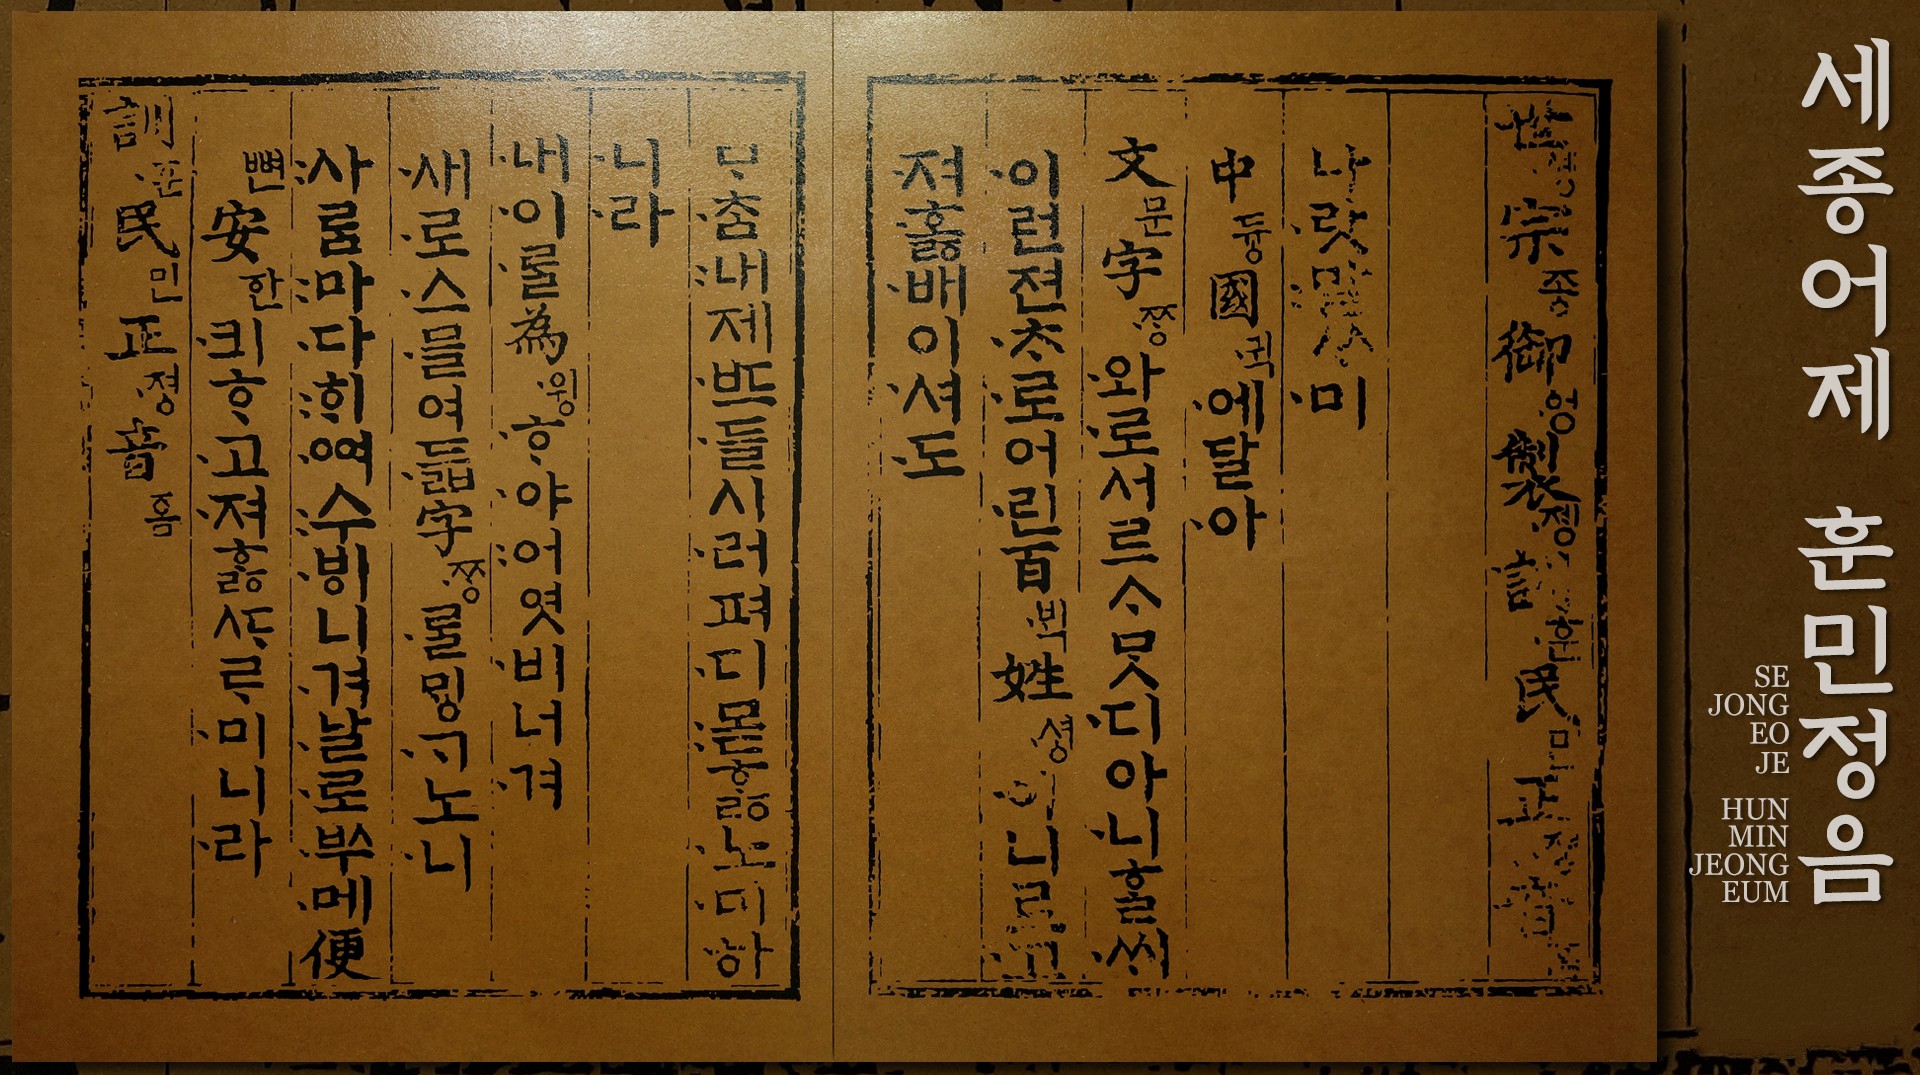 세종어제 훈민정음
SE
JONG
EO
JE
HUN
MIN
JEONG
EUM
世솅宗종御엉製졩訓훈民민正졍音ᅙᅳᆷ
나랏말ᄊᆞ미
中듕國귁에달아
文문字ᄍᆞᆼ와로서르ᄉᆞᄆᆞᆺ디아니ᄒᆞᆯᄊᆡ
이런젼ᄎᆞ로어린百ᄇᆡᆨ姓셩이니르고
져호ᇙ배이셔도
ᄆᆞᄎᆞᆷ내제ᄠᅳ들시러펴디몯ᄒᆞᇙ노미하
니라
내이ᄅᆞᆯ為윙ᄒᆞ야어엿비너겨
새로스믈여듧字ᄍᆞᆼᄅᆞᆯᄆᆡᇰᄀᆞ노니
사ᄅᆞᆷ마다ᄒᆡᅇᅧ수ᄫᅵ니겨날로ᄡᅮ메便
뼌安ᅙᅡᆫ킈ᄒᆞ고져ᄒᆞᇙᄯᆞᄅᆞ미니라
訓훈民민正졍音ᅙᅳᆷ